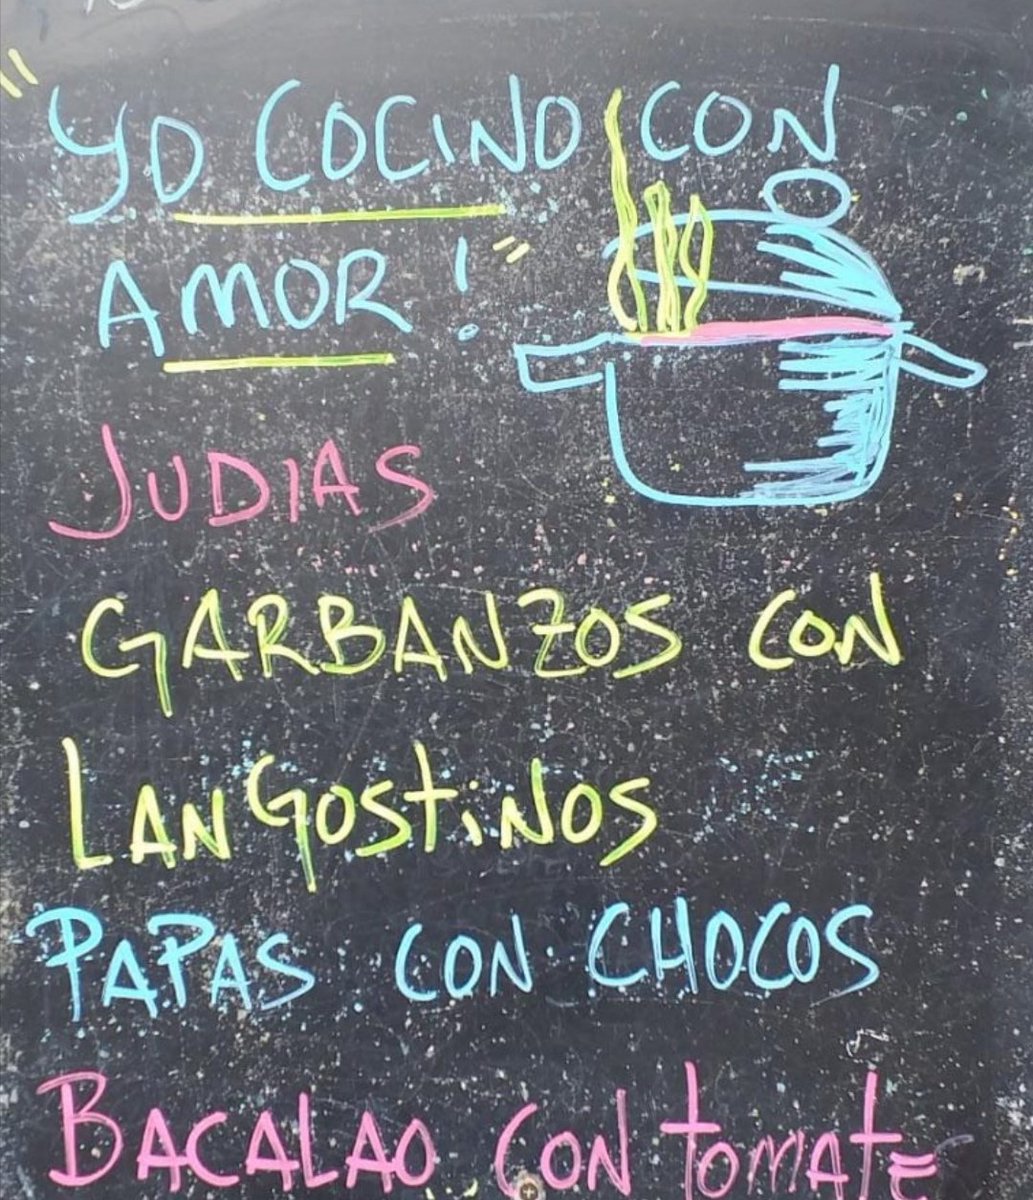 "YO COCINO CON
AMOR!"
JUDIAS
GARBANZOS CON
LANGOSTINOS
PAPAS CON CHOCOS
BACALAO CON tOMAtE